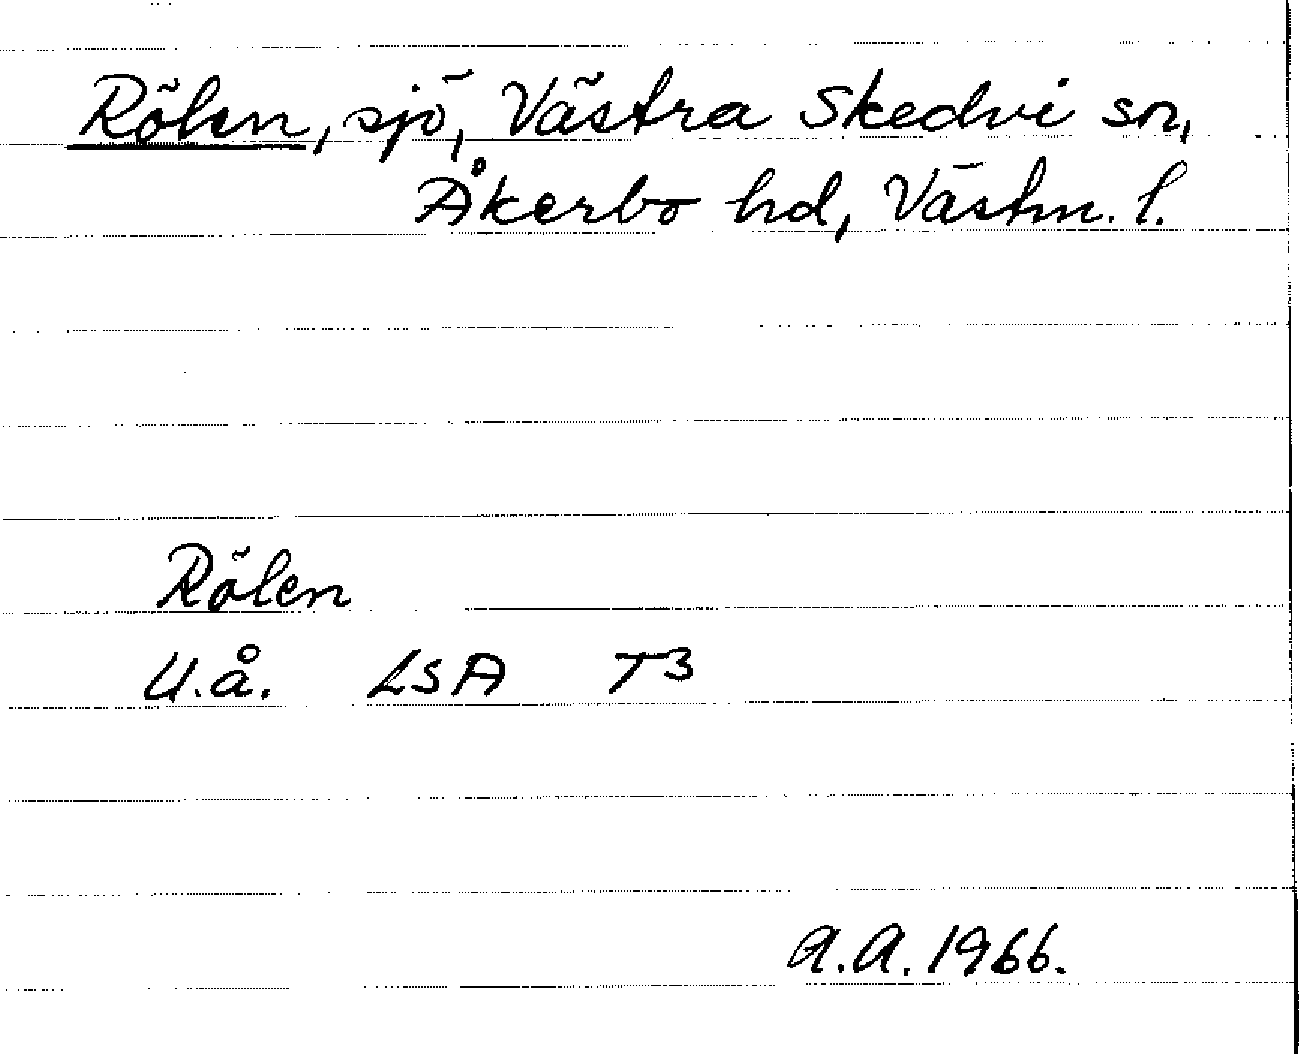 Rölen, sjö, Västra Skedvi sn,
Åkerbo hd, Västm. l.
Rölen
U.å. LSA T3
A.A. 1966.